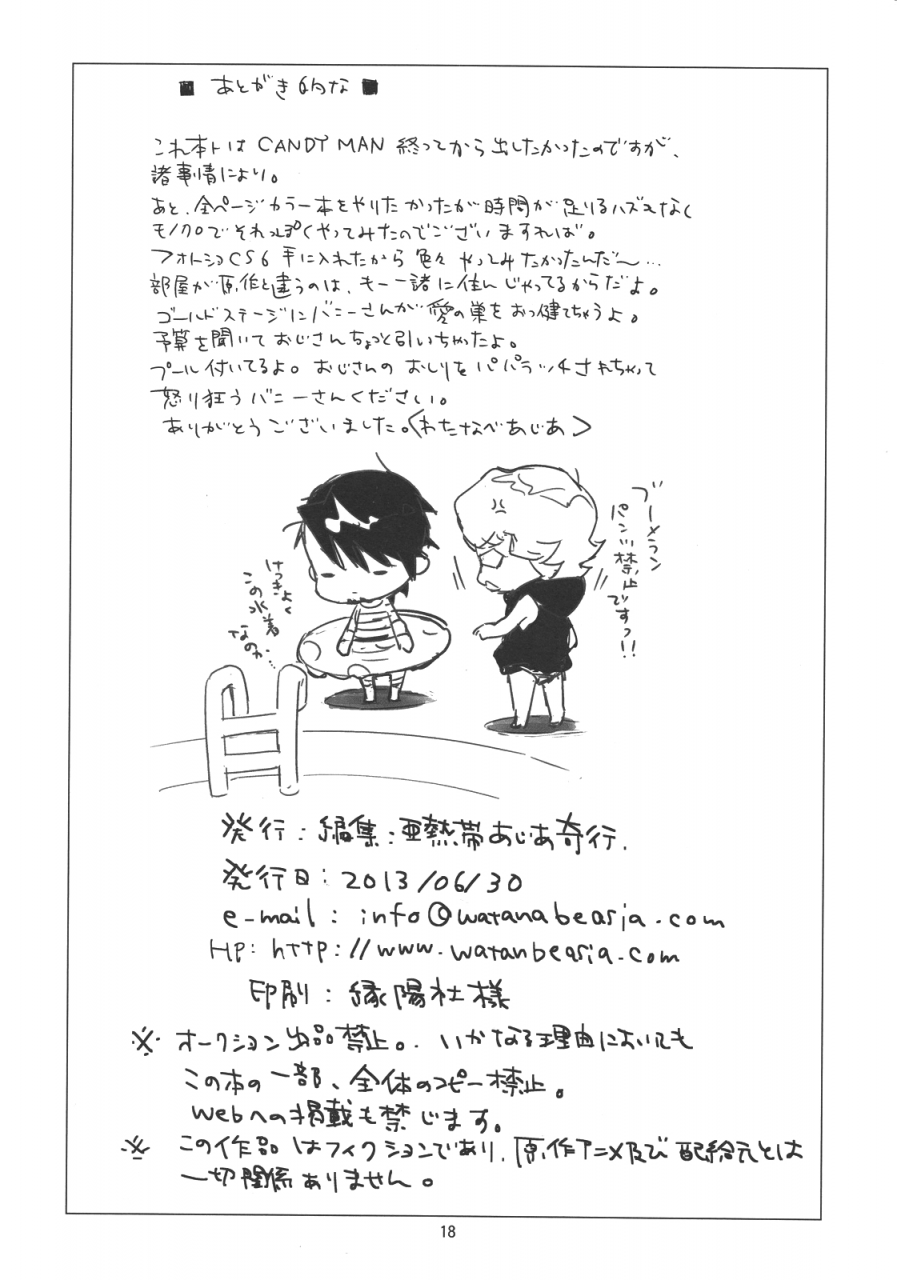 ■ あとがき的な ■
これ本トは CANDY MAN 終ってから出したかったのですが、
諸事情により。
あと、全ページカラー本をやりたかったが時間が足りるハズもなく
モノクロでそれっぽくやってみたのでございますれば。
フォトショCS6 手に入れたから色々やってみたかったんだ〜…
部屋が原作と違うのは、もー一諸に住んじゃってるからだよ。
ゴールドステージにバニーさんが愛の巣をおっ健てちゃうよ。
予算を聞いておじさんちょっと引いちゃったよ。
プール付いてるよ。おじさんの おしりを パパラッチされちゃって
怒り狂うバニーさんください。
ありがとうございました。<わたなべあじあ>
ブーメラン
パンツ禁止
ですっ!!
けっきょく
この水着
なのか…
発行:編集:亜熱帯あじあ奇行.
発行日:2013/06/30
e-mail : info@watanabeasia.com
HP: http://www.watanbeasia.com
印刷:縁陽社様
※ オークション出品禁止。いかなる理由においても
この本の一部、全体のコピー禁止。
webへの掲載も禁じます。
※ この作品はフィクションであり、原作アニメ及び配給元とは
一切関係ありません。
18